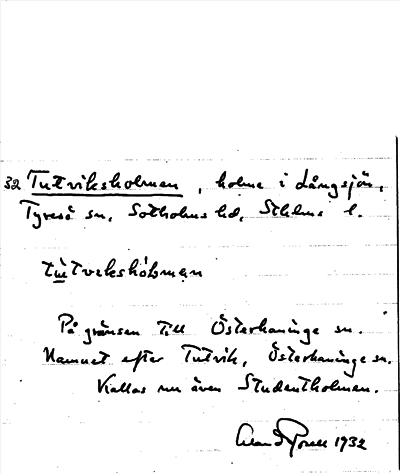 32 Tutviksholmen, holme i Långsjön,
Tyresö sn, Sotholms hd, Sthlms l.
På gränsen till Österhaninge sn.
Namnet efter Tutvik, Österhaninge sn.
Kallas nu även Studentholmen.
1932